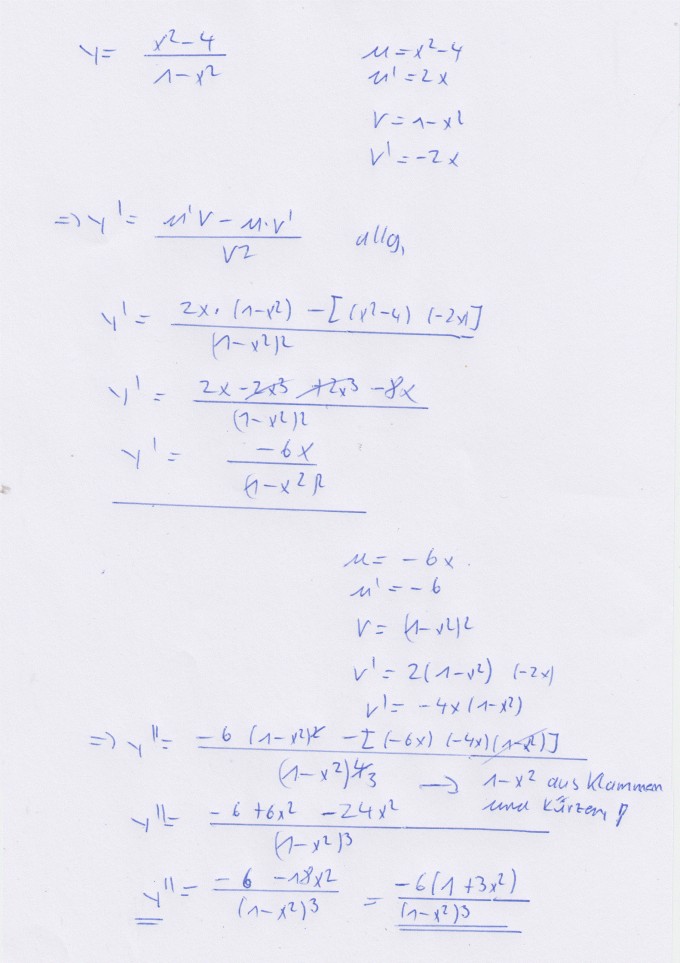 y = (x²-4)/(1-x²)
u = x²-4
u' = 2x
v = 1-x²
v' = -2x
=> y' = (u'v - u·v')/v² allg.
y' = (2x·(1-x²) - [(x²-4) (-2x)])/(1-x²)²
y' = (2x -2x³ +2x³ -8x)/(1-x²)²
y' = (-6x)/(1-x²)²
u = -6x
u' = -6
v = (1-x²)²
v' = 2(1-x²) (-2x)
v' = -4x(1-x²)
=> y'' = (-6 (1-x²)² - [(-6x) (-4x)(1-x²)])/(1-x²)⁴ 3
→ 1-x² ausklammen
und kürzen!
y'' = (-6 +6x² -24x²)/(1-x²)³
y'' = (-6 -18x²)/(1-x²)³ = (-6(1+3x²))/(1-x²)³